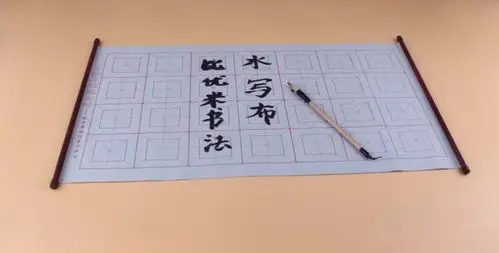 水写布
比优米书法